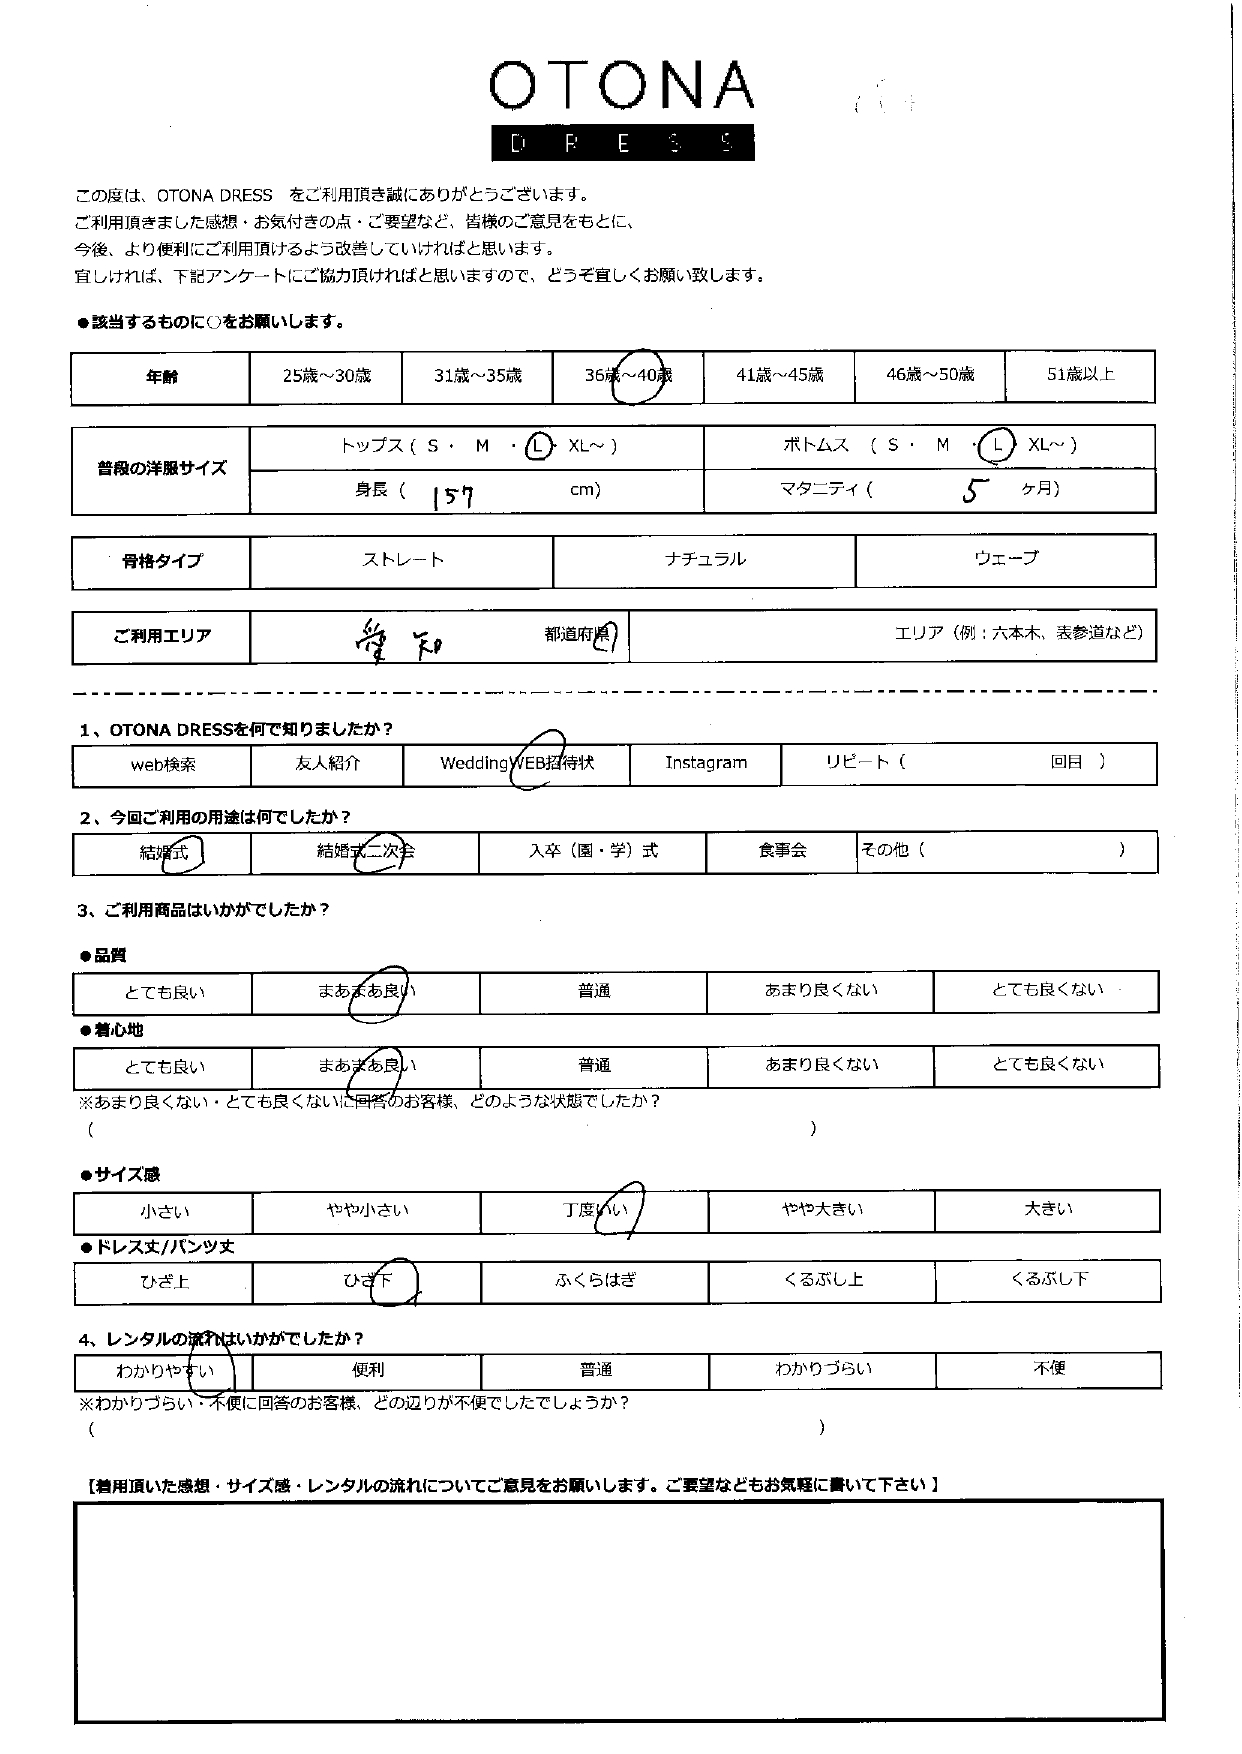 OTONA
DRESS
この度は、OTONA DRESS　をご利用頂き誠にありがとうございます。
ご利用頂きました感想・お気付きの点・ご要望など、皆様のご意見をもとに、
今後、より便利にご利用頂けるよう改善していければと思います。
宜しければ、下記アンケートにご協力頂ければと思いますので、どうぞ宜しくお願い致します。
●該当するものに○をお願いします。
年齢 25歳～30歳 31歳～35歳 36歳～40歳 41歳～45歳 46歳～50歳 51歳以上
普段の洋服サイズ トップス ( S ・ M ・ L ・ XL～ ) ボトムス ( S ・ M ・ L ・ XL～ )
身長 ( 157 cm) マタニティ ( 5 ヶ月)
骨格タイプ ストレート ナチュラル ウェーブ
ご利用エリア 愛知 都道府県 エリア（例：六本木、表参道など）
1、OTONA DRESSを何で知りましたか？
web検索 友人紹介 WeddingWEB招待状 Instagram リピート ( 回目 )
2、今回ご利用の用途は何でしたか？
結婚式 結婚式二次会 入卒（園・学）式 食事会 その他 ( )
3、ご利用商品はいかがでしたか？
●品質
とても良い まあまあ良い 普通 あまり良くない とても良くない
●着心地
とても良い まあまあ良い 普通 あまり良くない とても良くない
※あまり良くない・とても良くないに回答のお客様、どのような状態でしたか？
( )
●サイズ感
小さい やや小さい 丁度いい やや大きい 大きい
●ドレス丈/パンツ丈
ひざ上 ひざ下 ふくらはぎ くるぶし上 くるぶし下
4、レンタルの流れはいかがでしたか？
わかりやすい 便利 普通 わかりづらい 不便
※わかりづらい・不便に回答のお客様、どの辺りが不便でしたでしょうか？
( )
【着用頂いた感想・サイズ感・レンタルの流れについてご意見をお願いします。ご要望などもお気軽に書いて下さい 】